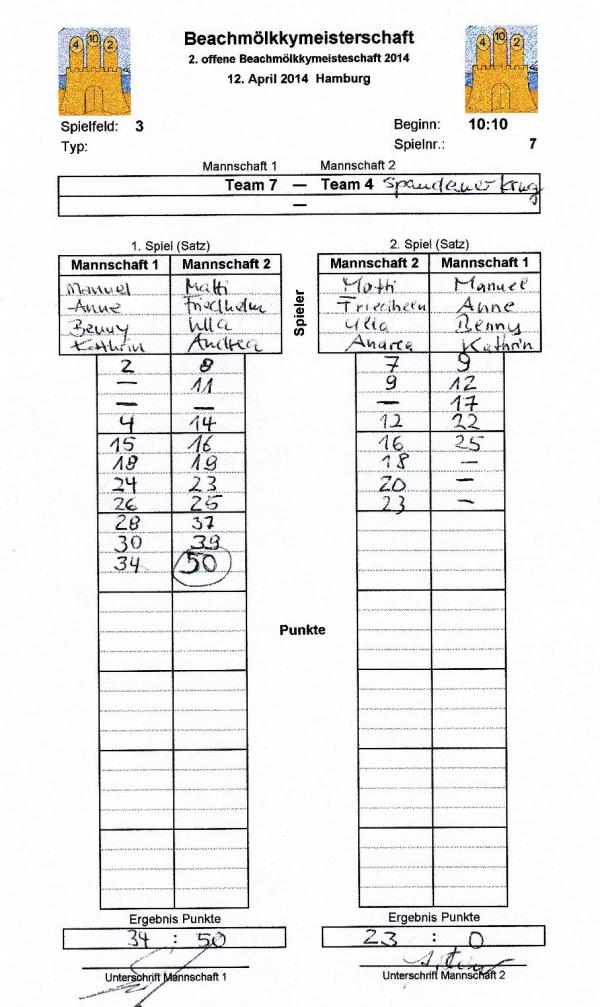 4 10 2
Beachmölkkymeisterschaft
4 10 2
2. offene Beachmölkkymeisteschaft 2014
12. April 2014 Hamburg
Spielfeld: 3 Beginn: 10:10
Typ: Spielnr.: 7
Mannschaft 1 Mannschaft 2
Team 7 — Team 4 Spandauer Krug
—
1. Spiel (Satz) 2. Spiel (Satz)
Mannschaft 1 Mannschaft 2 Mannschaft 2 Mannschaft 1
Manuel Matti Matti Manuel
Anne Friedhelm Friedhelm Anne
Benny Ulla Ulla Benny
Kathrin Andrea Andrea Kathrin
Spieler
2 8 7 9
— 11 9 12
— — — 17
4 14 12 22
15 16 16 25
18 19 18 —
24 23 20 —
26 25 23 —
28 37
30 39
34 50
Punkte
Ergebnis Punkte Ergebnis Punkte
34 : 50 23 : 0
Unterschrift Mannschaft 1 Unterschrift Mannschaft 2